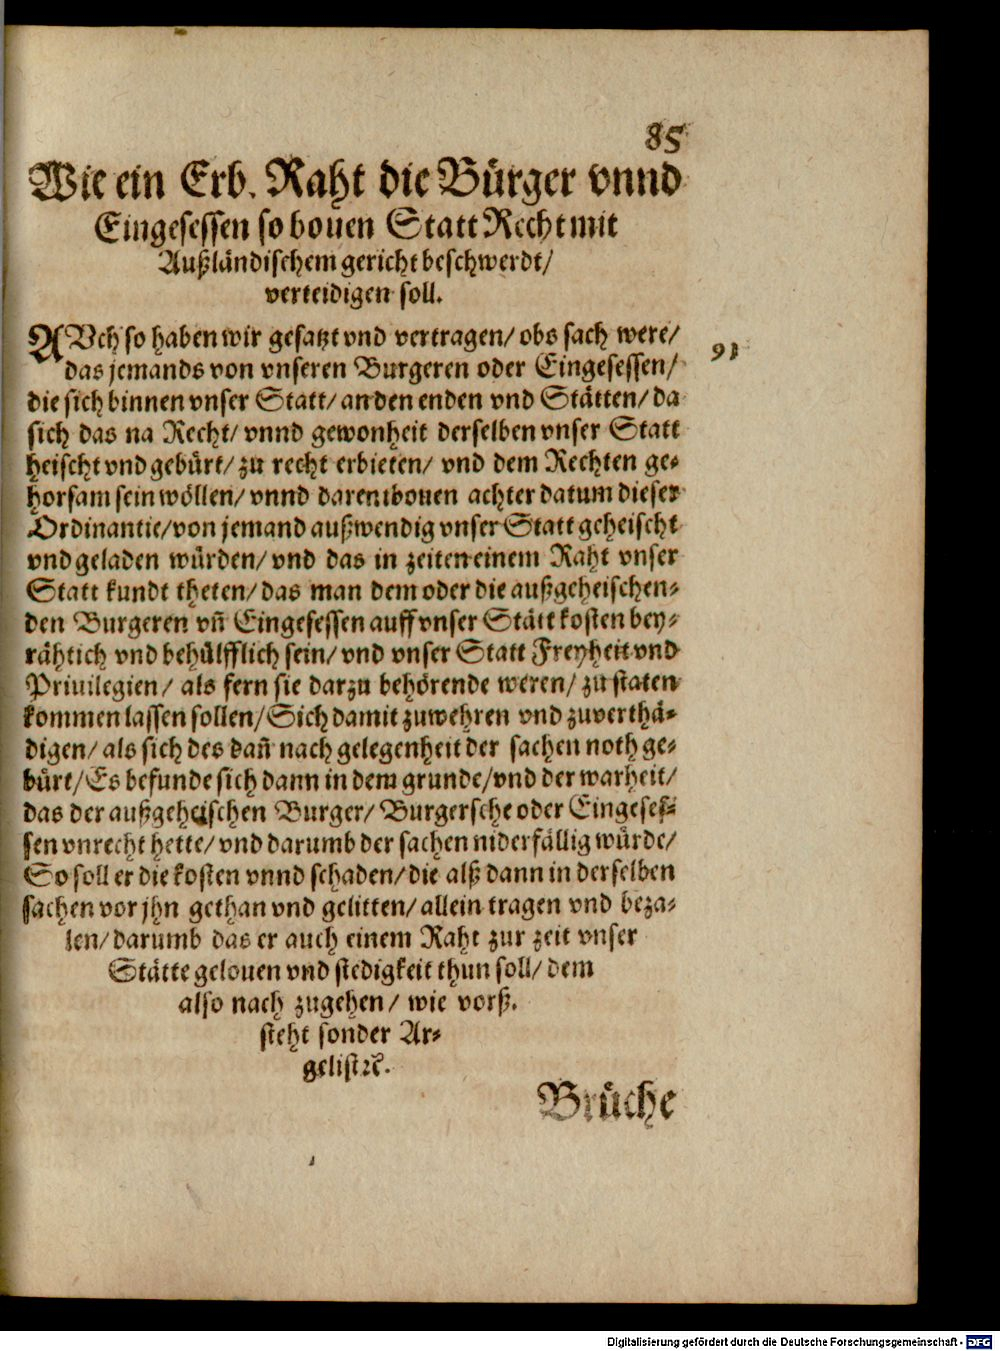 85
Wie ein Erb. Raht die Bürger vnnd
Eingesessen so bouen Statt Recht mit
Außländischem gericht beschwerdt/
verteidigen soll.
AVch so haben wir gesatzt vnd vertragen/ obs sach were/
91
das jemands von vnseren Burgeren oder Eingesessen/
die sich binnen vnser Statt/ an den enden vnd Stätten/ da
sich das na Recht/ vnnd gewonheit derselben vnser Statt
heischt vnd gebürt/ zu recht erbieten/ vnd dem Rechten ge-
horsam sein wöllen/ vnnd darenibouen achter datum dieser
Ordinantie/ von jemand außwendig vnser Statt geheischt
vnd geladen würden/ vnd das in zeiten einem Raht vnser
Statt kundt theten/ das man dem oder die außgeheischen-
den Burgeren vñ Eingesessen auff vnser Stätt kosten bey-
rähtich vnd behülfflich sein/ vnd vnser Statt Freyheit vnd
Priuilegien/ als fern sie darzu behörende weren/ zu staten
kommen lassen sollen/ Sich damit zuwehren vnd zuverthä-
digen/ als sich des dañ nach gelegenheit der sachen noth ge-
bürt/ Es befunde sich dann in dem grunde/ vnd der warheit/
das der außgeheischen Burger/ Burgersche oder Eingeses-
sen vnrecht hette/ vnd darumb der sachen niderfällig würde/
So soll er die kosten vnnd schaden/ die alß dann in derselben
sachen vor jhn gethan vnd gelitten/ allein tragen vnd beza-
len/ darumb das er auch einem Raht zur zeit vnser
Stätte gelouen vnd stedigkeit thun soll/ dem
also nach zugehen/ wie vorß.
steht sonder Ar-
gelist ꝛc.
Brüche
Digitalisierung gefördert durch die Deutsche Forschungsgemeinschaft - DFG